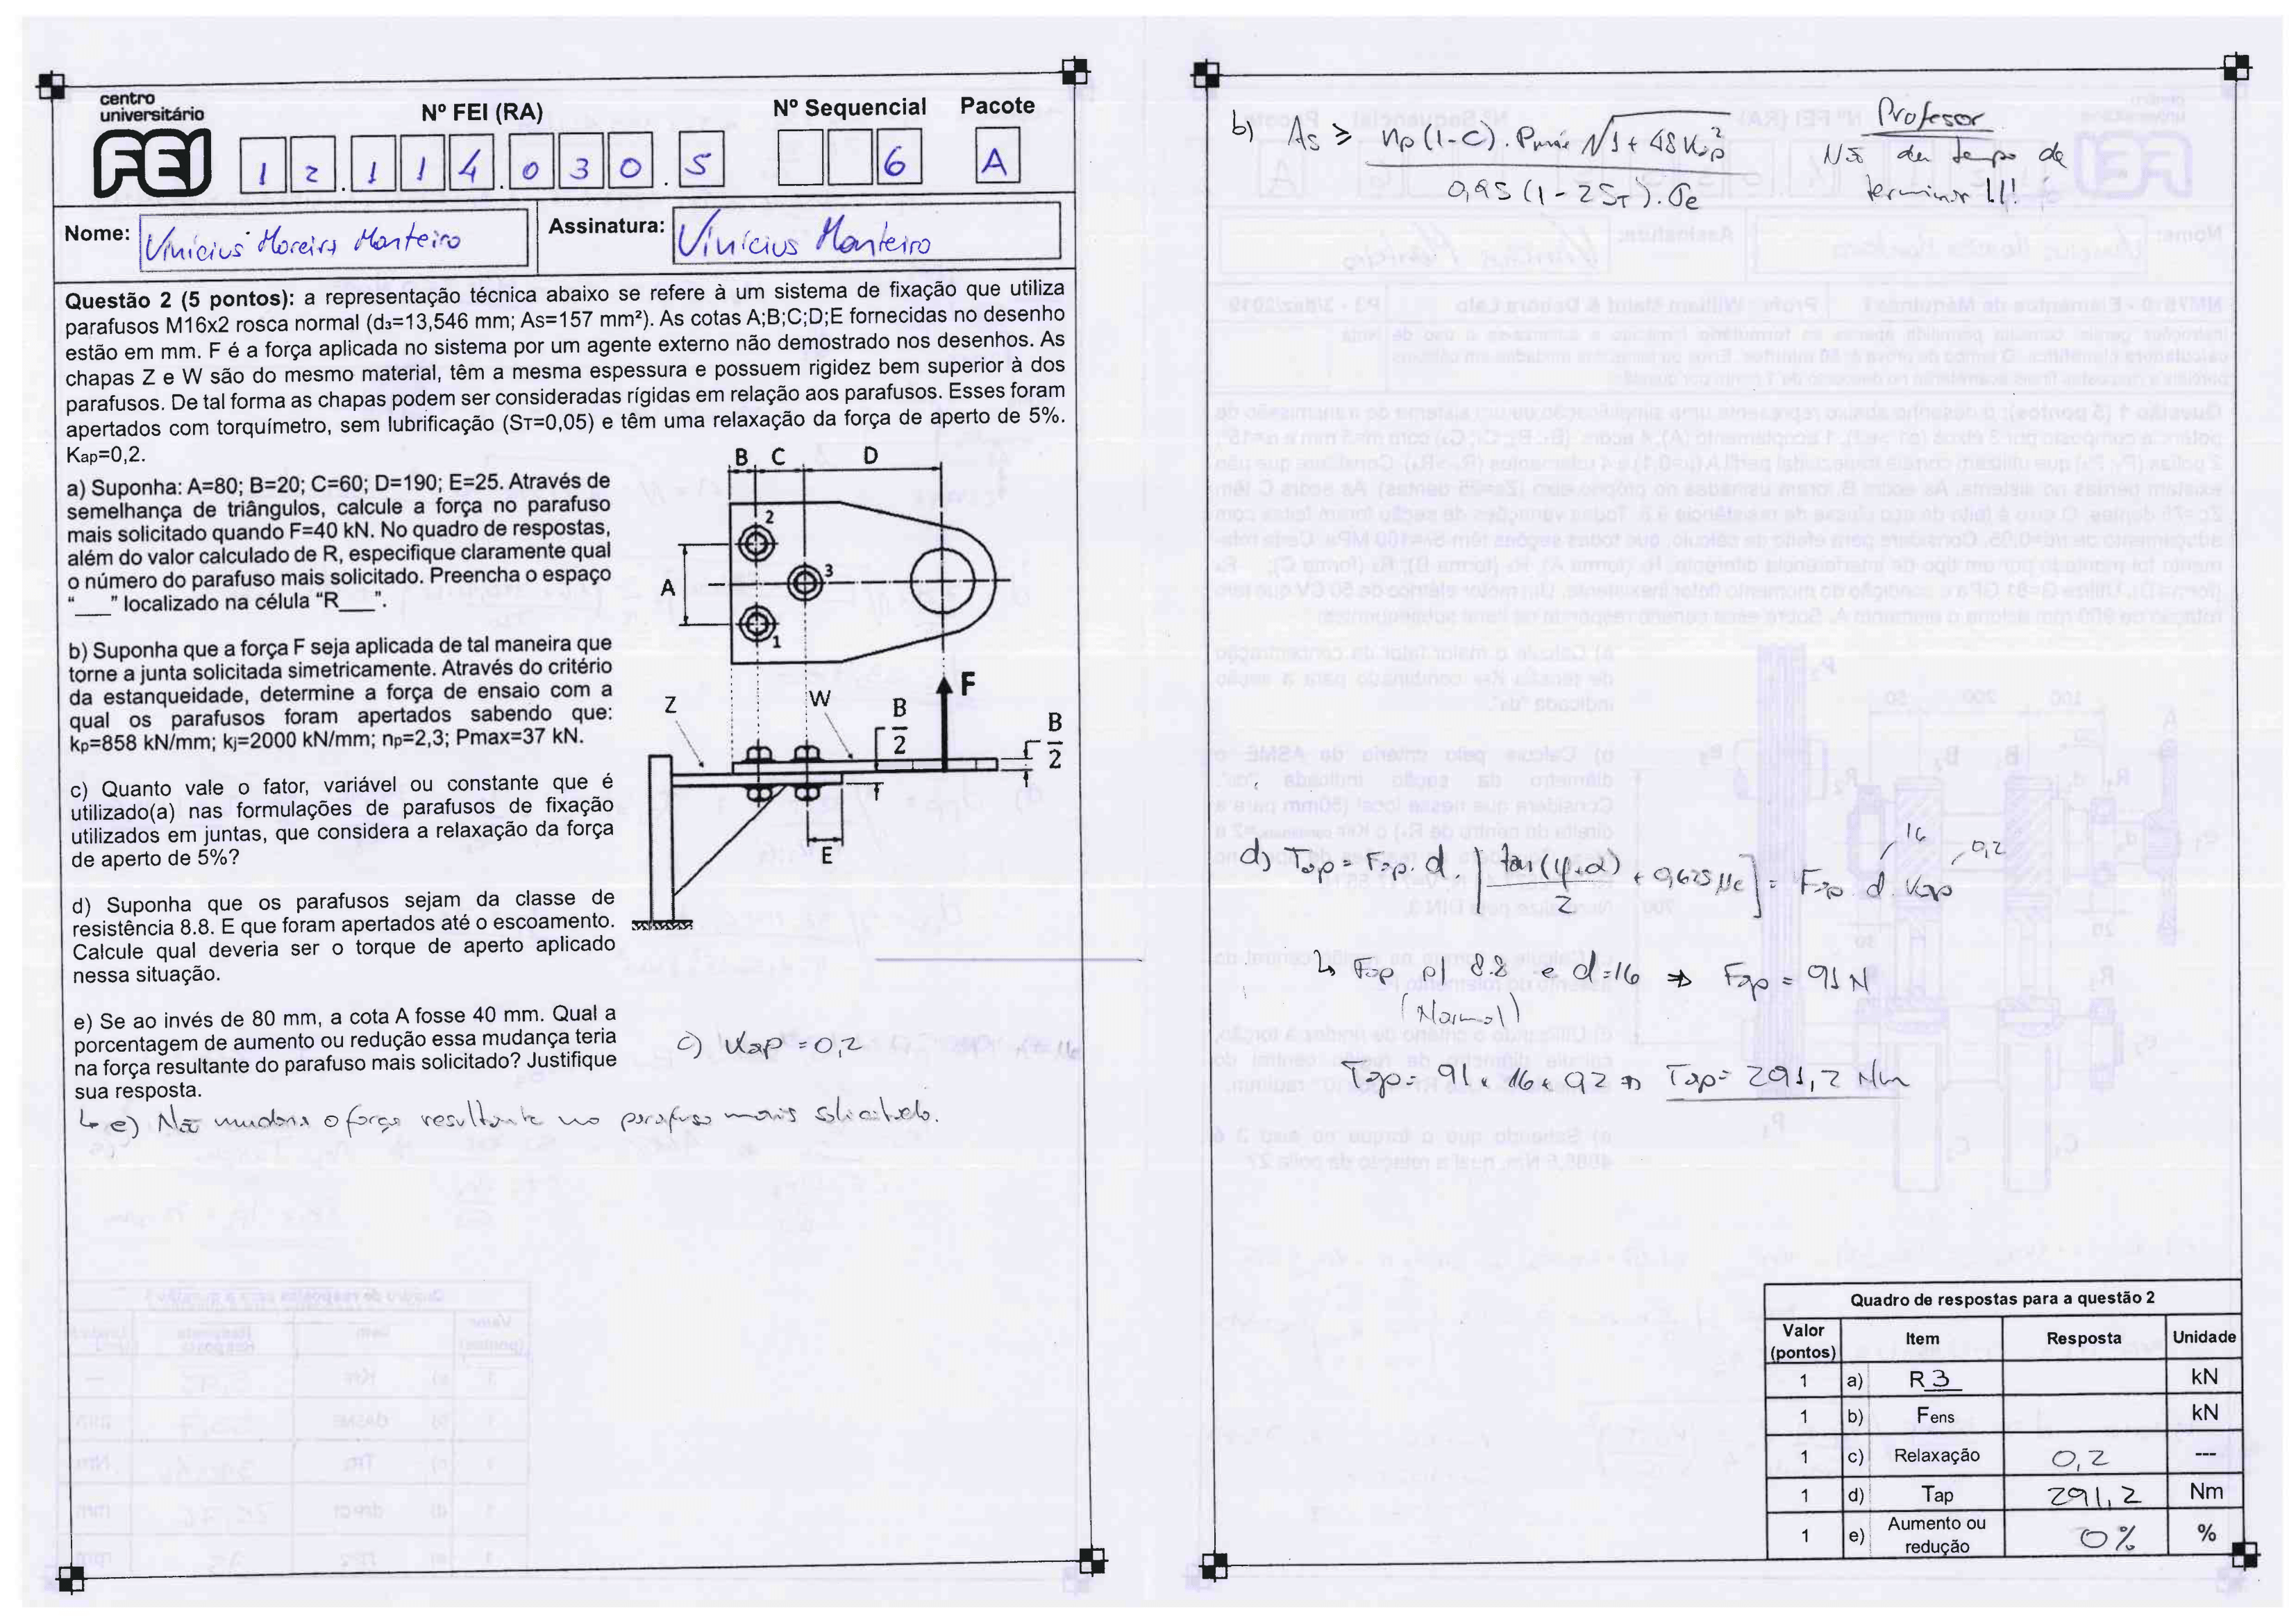 centro
universitário
FEI
Nº FEI (RA)
Nº Sequencial
Pacote
1 2 . 1 1 4 . 0 3 0 . 5
6
A
Nome: Vinicius Moreira Monteiro
Assinatura: Vinícius Monteiro
Questão 2 (5 pontos): a representação técnica abaixo se refere à um sistema de fixação que utiliza
parafusos M16x2 rosca normal (d₃=13,546 mm; As=157 mm²). As cotas A;B;C;D;E fornecidas no desenho
estão em mm. F é a força aplicada no sistema por um agente externo não demostrado nos desenhos. As
chapas Z e W são do mesmo material, têm a mesma espessura e possuem rigidez bem superior à dos
parafusos. De tal forma as chapas podem ser consideradas rígidas em relação aos parafusos. Esses foram
apertados com torquímetro, sem lubrificação (Sᴛ=0,05) e têm uma relaxação da força de aperto de 5%.
Kap=0,2.
a) Suponha: A=80; B=20; C=60; D=190; E=25. Através de
semelhança de triângulos, calcule a força no parafuso
mais solicitado quando F=40 kN. No quadro de respostas,
além do valor calculado de R, especifique claramente qual
o número do parafuso mais solicitado. Preencha o espaço
“___” localizado na célula “R___”.
b) Suponha que a força F seja aplicada de tal maneira que
torne a junta solicitada simetricamente. Através do critério
da estanqueidade, determine a força de ensaio com a
qual os parafusos foram apertados sabendo que:
kp=858 kN/mm; kj=2000 kN/mm; np=2,3; Pmax=37 kN.
c) Quanto vale o fator, variável ou constante que é
utilizado(a) nas formulações de parafusos de fixação
utilizados em juntas, que considera a relaxação da força
de aperto de 5%?
d) Suponha que os parafusos sejam da classe de
resistência 8.8. E que foram apertados até o escoamento.
Calcule qual deveria ser o torque de aperto aplicado
nessa situação.
e) Se ao invés de 80 mm, a cota A fosse 40 mm. Qual a
porcentagem de aumento ou redução essa mudança teria
na força resultante do parafuso mais solicitado? Justifique
sua resposta.
↳ e) Não mudaria a força resultante no parafuso mais solicitado.
B C D
2
3
A
1
Z
W
B/2
F
B/2
E
c) Kap = 0,2
b) As ≥ np (1-C) . Pmáx √1 + 48 Kap² / 0,95 (1 - 2Sᴛ) . σe
Profesor
Não deu tempo de
terminar !!!
d) Tap = Fap . d . [ tan(φ+α) / 2 + 0,625 μc ] = Fap . d . Kap
16
0,2
↳ Fap p/ 8.8 e d=16 ⇒ Fap = 91 N
(Normal)
Tap = 91 × 16 × 0,2 ⇒ Tap = 291,2 Nm
Quadro de respostas para a questão 2
Valor (pontos) Item Resposta Unidade
1 a) R 3 kN
1 b) Fens kN
1 c) Relaxação 0,2 ---
1 d) Tap 291,2 Nm
1 e) Aumento ou redução 0% %